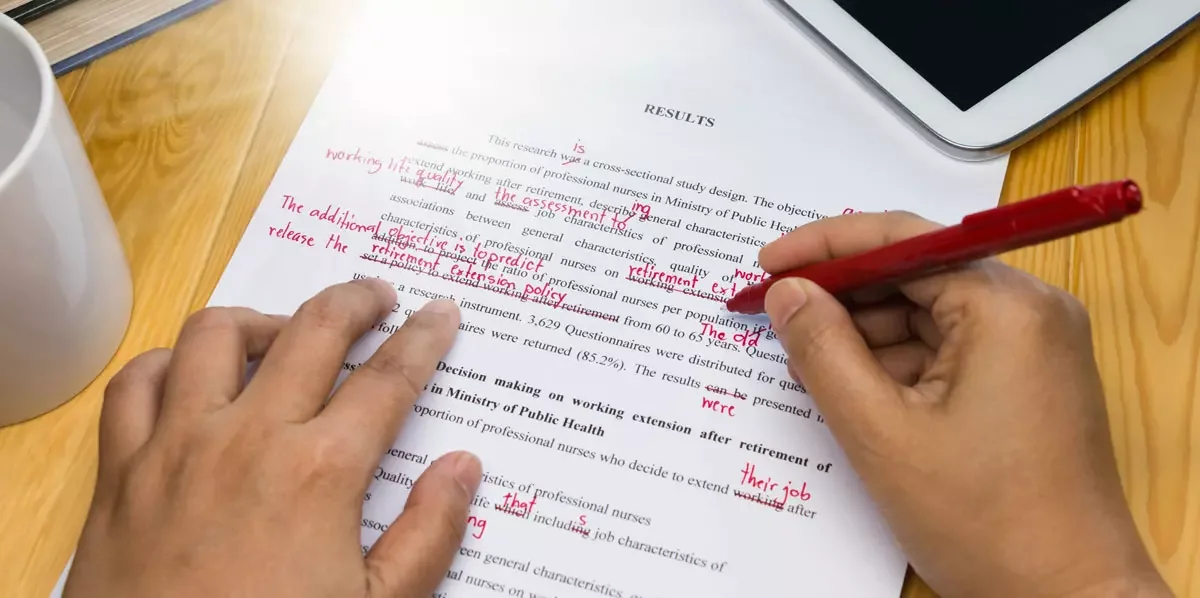 RESULTS
is
This research was a cross-sectional study design. The objective
assess the proportion of professional nurses in Ministry of Public
working life quality
extend working after retirement, describe general characteristics
ing
work life and assess job characteristics of professional
the assessment to
associations between general characteristics, quality of
work
The additional objective is to predict
characteristics of professional nurses on working extension
retirement ext
addition, to project the ratio of professional nurses per population
release the retirement extension policy
set a policy to extend working after retirement from 60 to 65 years.
The old
a research instrument. 3,629 Questionnaires were distributed for
were returned (85.2%). The results can be presented
were
Decision making on working extension after retirement of
in Ministry of Public Health
proportion of professional nurses who decide to extend working after
their job
general characteristics of professional nurses
Quality life which including job characteristics of
that
s
ng
general characteristics,
nurses on